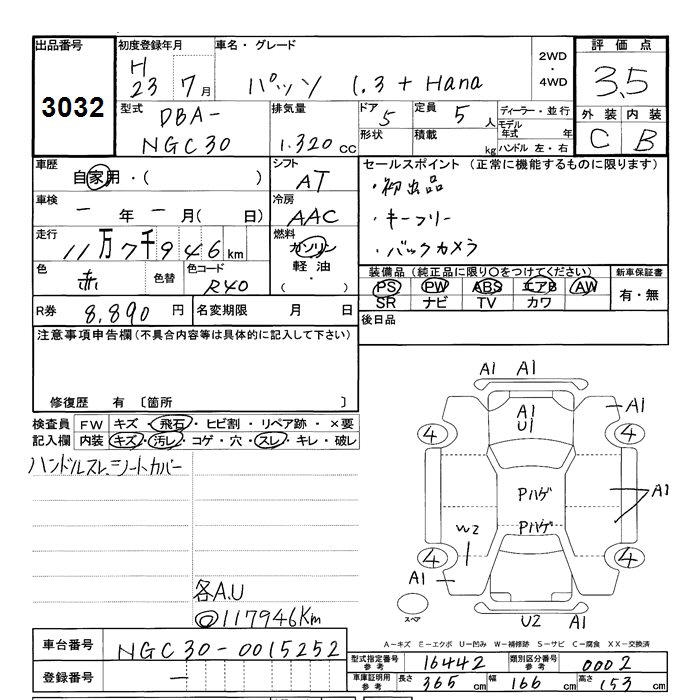 出品番号
3032
初度登録年月
H
23 7月
車名・グレード
パッソ 1.3 + Hana
2WD
・
4WD
評価点
3.5
外装 内装
C B
型式
DBA-
NGC30
排気量
1.320cc
ドア
5
定員
5人
形状
積載
kg
ディーラー・並行
モデル年式 年
ハンドル 左・右
車歴
自家用・( )
シフト
AT
車検
一年一月( 日)
冷房
AAC
走行
11万7千946km
燃料
ガソリン
軽油
( ・ )
色
赤
色替
色コード
R40
R券
8,890円
名変期限 月 日
セールスポイント(正常に機能するものに限ります)
・初出品
・キーフリー
・バックカメラ
装備品(純正品に限り〇をつけてください)
PS PW ABS エアB AW
SR ナビ TV カワ
新車保証書
有・無
後日品
注意事項申告欄(不具合内容等は具体的に記入して下さい)
修復歴 有 〔箇所 〕
検査員記入欄
FW キズ・飛石・ヒビ割・リペア跡・×要
内装 キズ・汚レ・コゲ・穴・スレ・キレ・破レ
ハンドルスレ、シートカバー
各A.U
◎117946Km
A1 A1
A1
U1
A1
4 4
Pハゲ
Pハゲ
A1
W2
4 4
A1
スペア
U2 A1
A−キズ E−エクボ U−凹み W−補修跡 S−サビ C−腐食 XX−交換済
車台番号
NGC30-0015252
登録番号
—
型式指定番号
参考
16442
類別区分番号
参考
0002
車庫証明用
参考
長さ 365cm
幅 166cm
高さ 153cm